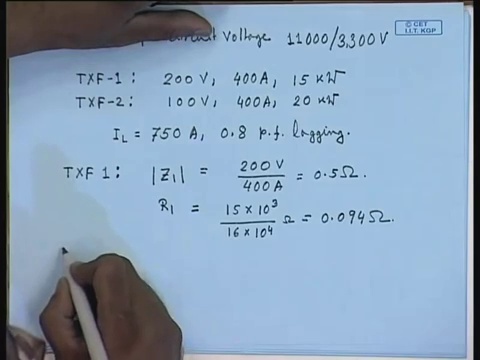 Voltage 11000/3,300V
© CET
I.I.T. KGP
TXF-1: 200 V, 400A, 15 KW
TXF-2: 100 V, 400A, 20 KW
IL = 750 A, 0.8 p.f. lagging.
TXF 1: |Z1| = 200 V / 400 A = 0.5Ω.
R1 = 15 × 10³ / 16 × 10⁴ Ω = 0.094Ω.